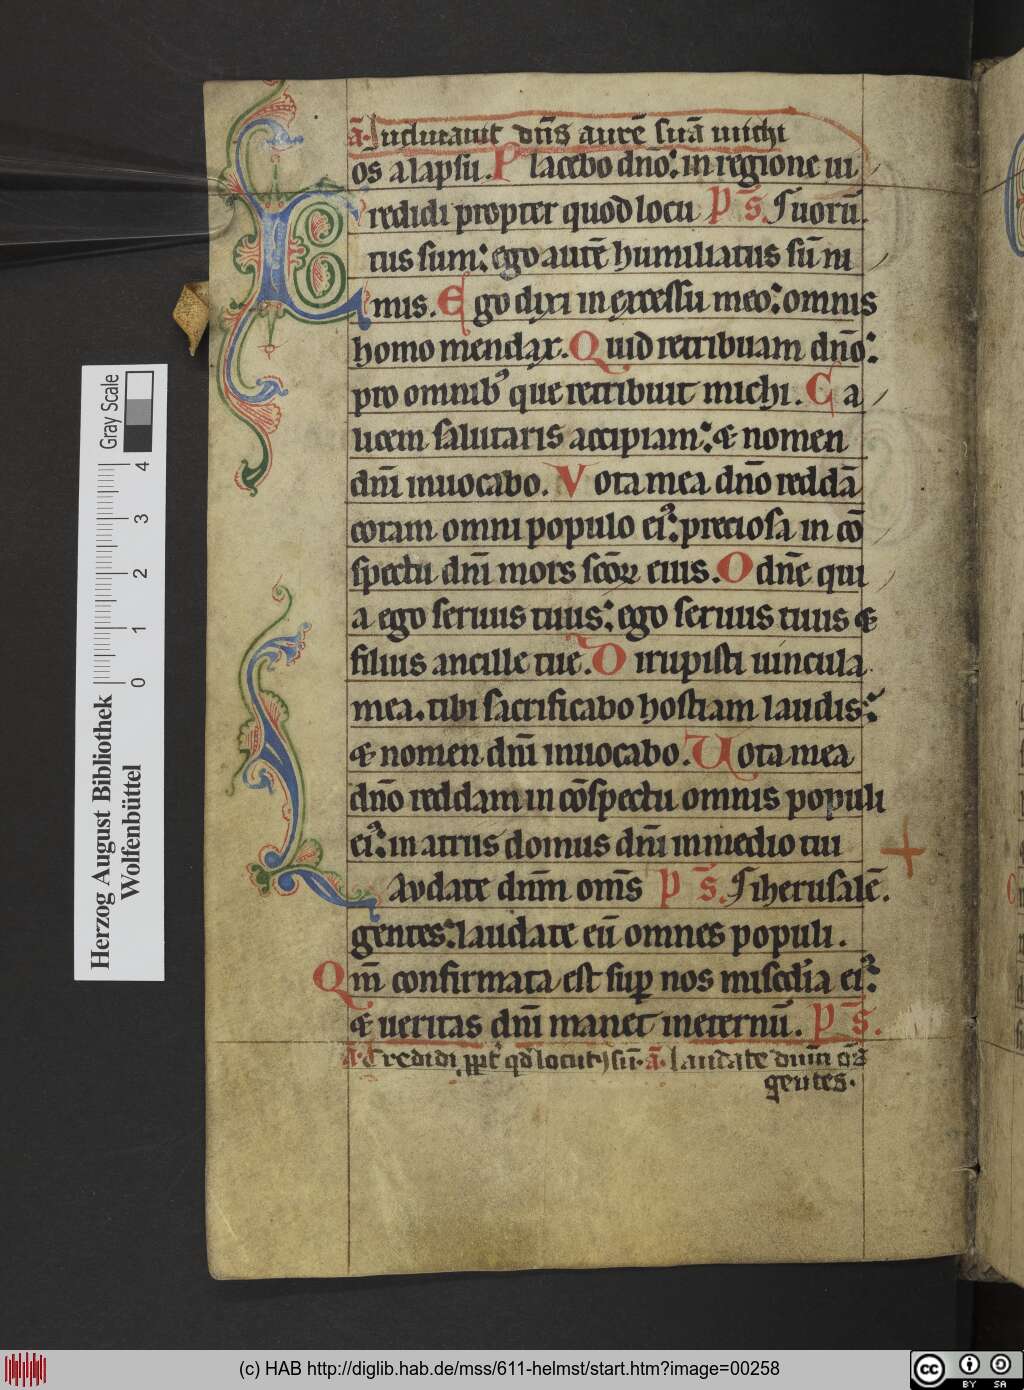 ā. Inclinauit dn̄s aurē suā michi
os̄ a lapsu. Placebo dn̄o: in regione ui
redidi propter quod locu p̄s. Tuorū.
tus sum: ego autē humiliatus sū ni
mis. Ego dixi in excessu meo: omnis
homo mendax. Quid retribuam dn̄o:
pro omnibꝰ que retribuit michi. Ca
licem salutaris accipiam: & nomen
dn̄i inuocabo. Vota mea dn̄o reddā
coram omni populo eiꝰ: preciosa in cō
spectu dn̄i mors sc̄oꝝ eius. O dn̄e qui
a ego seruus tuus: ego seruus tuus &
filius ancille tue. Dirupisti uincula
mea. tibi sacrificabo hostiam laudis:
& nomen dn̄i inuocabo. Vota mea
dn̄o reddam in cōspectu omnis populi
eiꝰ: in atriis domus dn̄i in medio tui
Laudate dn̄m om̄s p̄s. iherusalē.
gentes: laudate eū omnes populi.
Qm̄ confirmata est suꝑ nos mis̄cdia eiꝰ:
& ueritas dn̄i manet in eternū. p̄s.
ā. Credidi ꝓpt̄ qd̄ locutꝰ sū. ā. laudate dn̄m om̄s
gentes.
Herzog August Bibliothek
Wolfenbüttel
0 1 2 3 4
Gray Scale
(c) HAB http://diglib.hab.de/mss/611-helmst/start.htm?image=00258
cc BY SA